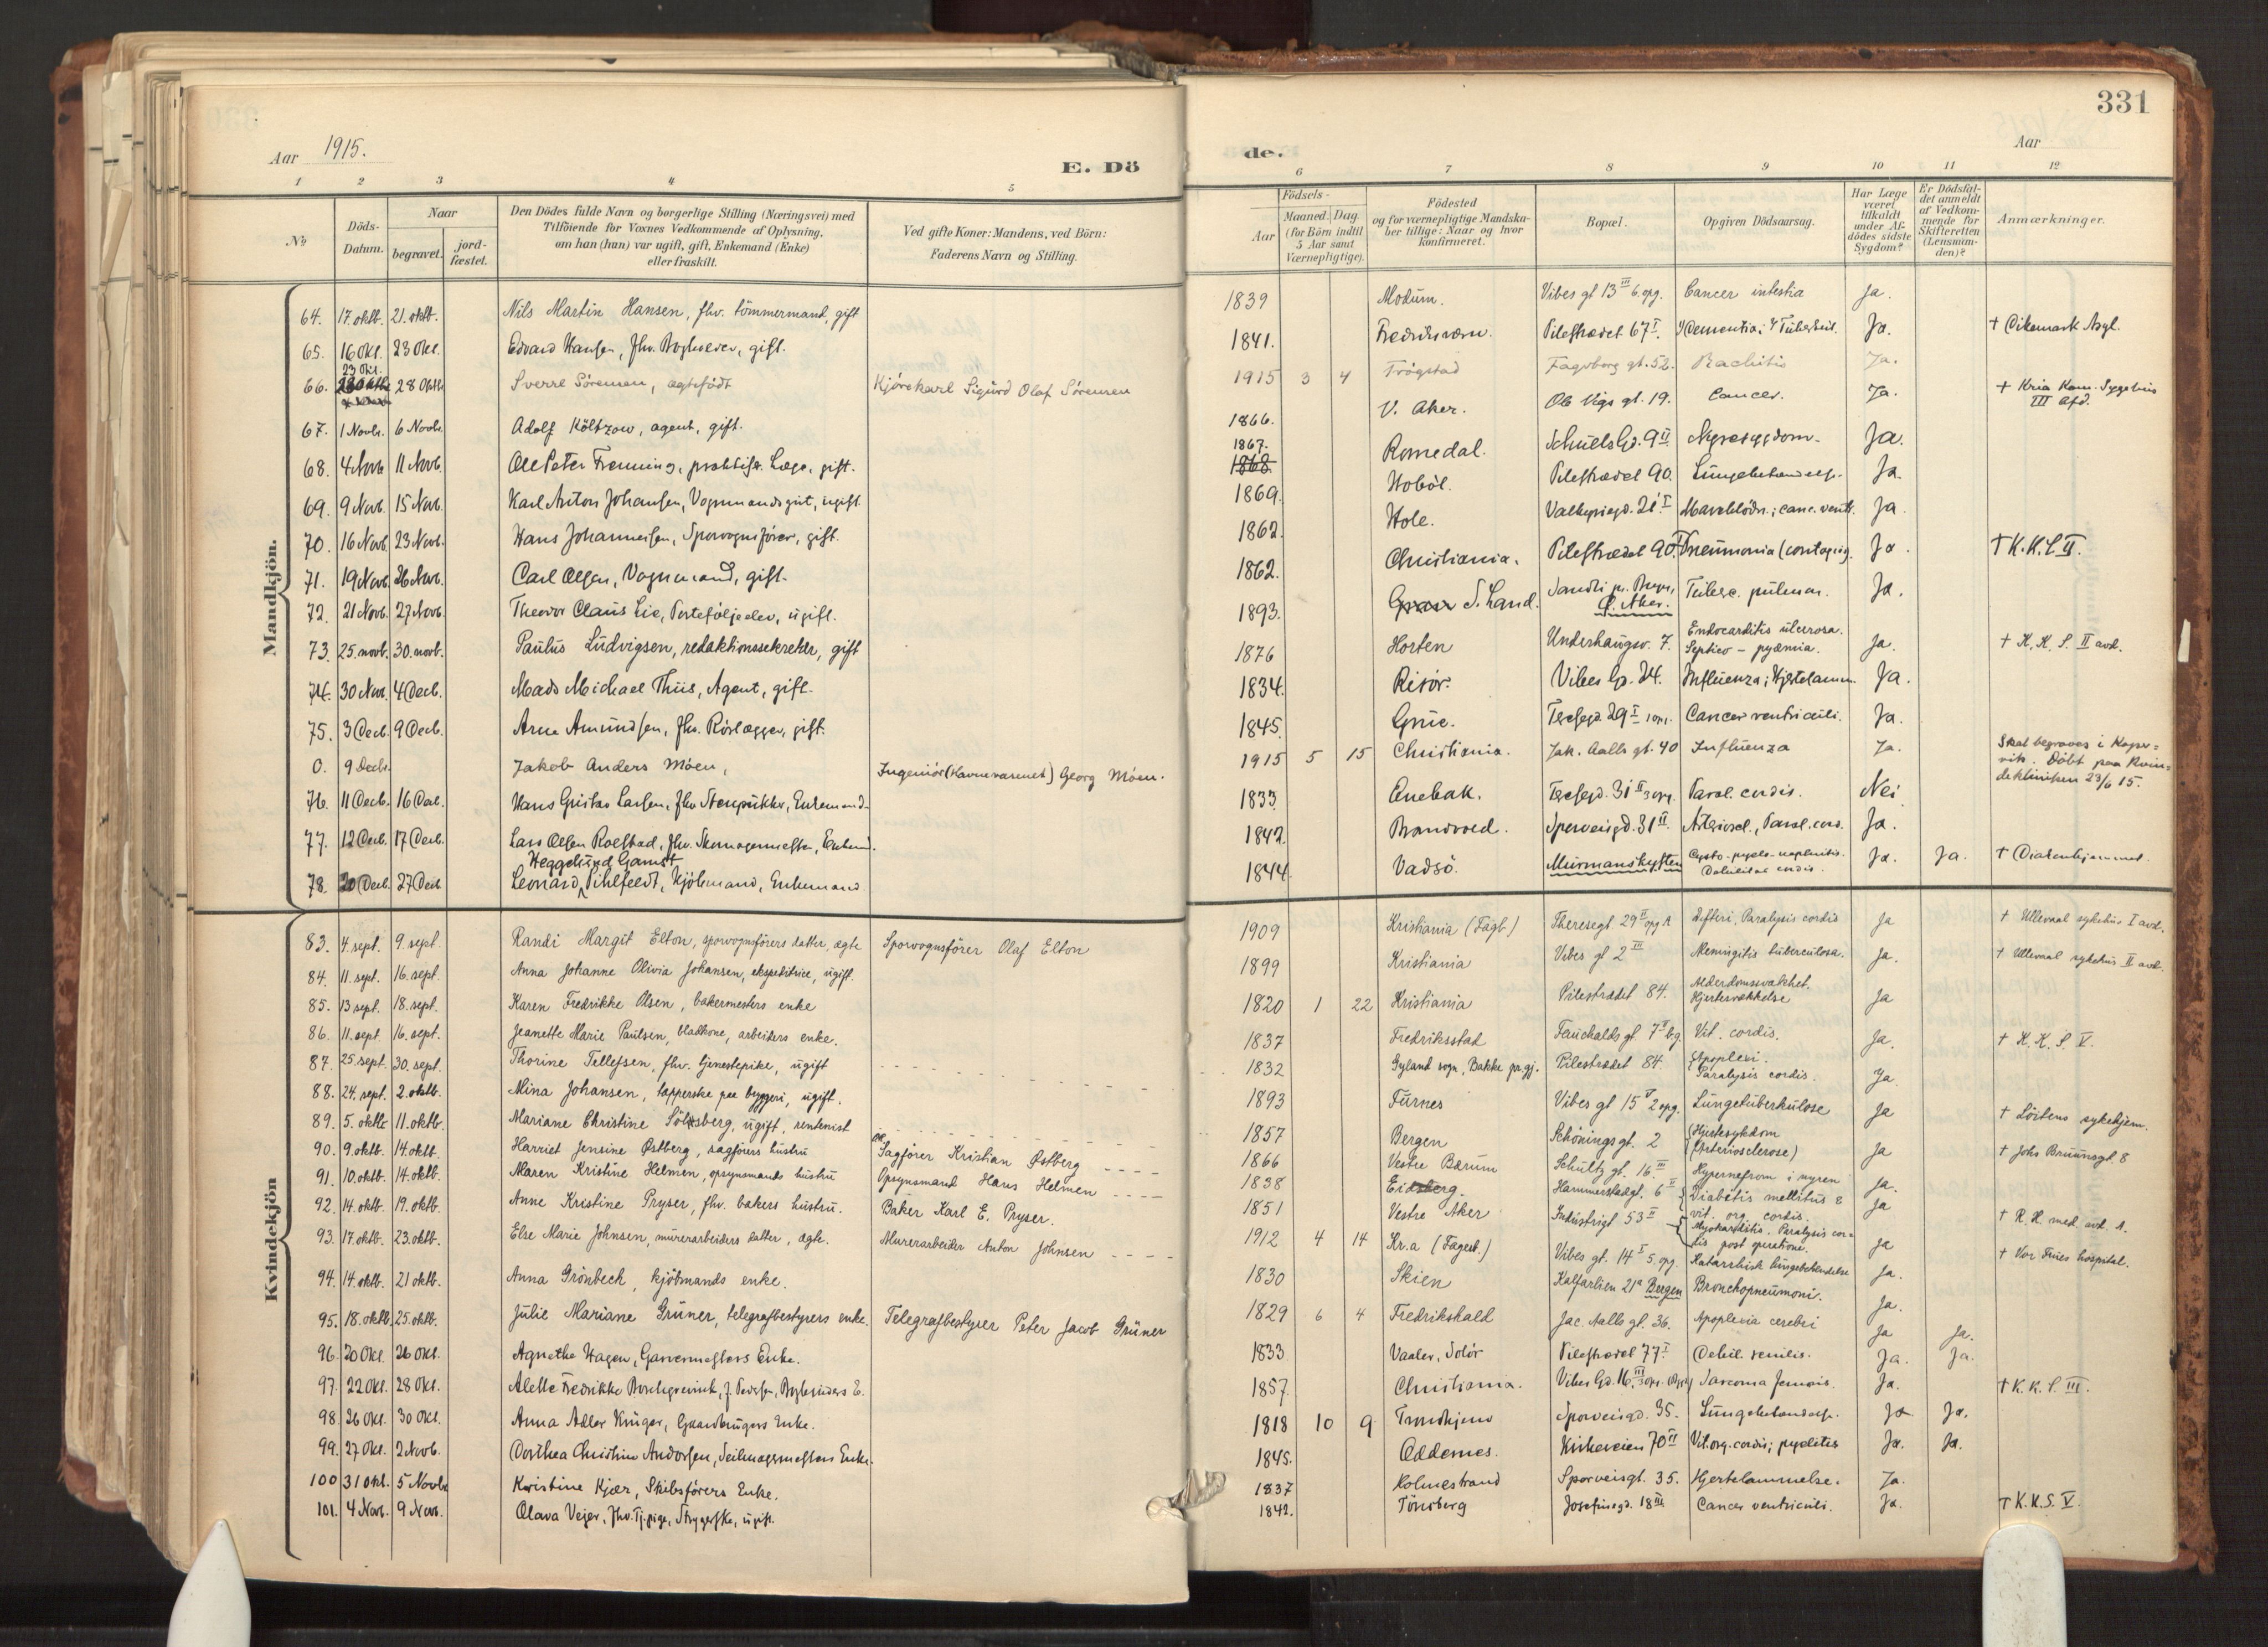 331
Aar 1915.
E. Dö
de.
Aar
1 2 3 4 5
6 7 8 9 10 11 12
№
Döds-Datum.
Naar
begravet.
jord-fæstet.
Den Dödes fulde Navn og borgerlige Stilling (Næringsvei) med
Tilföiende for Voxnes Vedkommende af Oplysning,
om han (hun) var ugift, gift, Enkemand (Enke)
eller fraskilt.
Ved gifte Koner: Mandens, ved Börn:
Faderens Navn og Stilling.
Födsels-
Aar
Maaned. Dag.
(for Börn indtil
5 Aar samt
Værnepligtige).
Födested
og for værnepligtige Mandska-
ber tillige: Naar og hvor
konfirmeret.
Bopæl.
Opgiven Dödsaarsag.
Har Læge
været
tilkaldt
under Af-
dödes sidste
Sygdom?
Er Dödsfal-
det anmeldt
af Vedkom-
mende for
Skifteretten
(Lensman-
den)?
Anmærkninger.
Mandkjön.
64. 17. oktb. 21. oktb. Nils Martin Hansen, fhv. tömmermand, gift 1839 Modum. Vibes gt 13 III 6. opg. Cancer intestia Ja.
65. 16 Okt. 23 Okt. Edvard Hansen, fhv. gift. 1841. Fredriksværn. Pilestrædet 67 I. Dementia; Ja. † Dikemark Asyl.
66. 23 Okt. 28 Oktb Sverre Sörensen, ægtefödt Kjörekarl Sigurd Olaf Sörensen 1915 3 4 Trögstad Fagerborg gt. 52. Rachitis Ja.
67. 1 Novbr. 6 Novbr. Adolf Költzow, agent, gift. 1866. V. Aker. Ole Vigs gt. 19. Cancer. Ja. † Kria Kom. Sygehus III Afd.
68. 4 Novb 11 Novb. Ole Peter praktiser. Læge, gift. 1867. 1868. Romedal. Schultz Gd. 9 II. Nyresygdom. Ja.
69. 9 Novb. 15 Novb. Karl Anton Johansen, Vognmandsgut, ugift. 1869. Hoböl. Pilestrædet 90. Ja.
70. 16 Novb. 23 Novb. Hans Johannesen, Sporvognsförer, gift. 1862. Hole. Valkyriegd. 21 I. Maveblödn.; canc. ventr. Ja
71. 19 Novb. 26 Novb. Carl Olsen, Vognmand, gift. 1862. Christiania. Pilestrædet 90. Pneumonia (contagiös). Ja. † K. K. S. II.
72. 21 Novb. 27 Novb. Theodor Claus Lie, Porteföljeelev, ugift. 1893. S. Land. Sandli pr. Bryn, Ö. Aker. Tuberc. pulmon. Ja.
73. 25. novb. 30. novb. Paulus Ludvigsen, redaktionssekretær, gift 1876 Horten Underhaugsv. 7. Endocarditis ulcerosa. Septico - pyæmia. Ja. † K. K. S. II avd.
74. 30 Nov. 4 Decb. Mads Michael Thiis, Agent, gift. 1834. Risör. Vibes Gd. 24. Influenza; Hjertelamm. Ja.
75. 3 Decb. 9 Decb. Arne Amundsen, fhv. Rörlægger, gift. 1845. Grue. Teresegd. 29 I 1 opg. Cancer ventriculi. Ja.
0. 9 Decbr. Jakob Anders Möen, Ingeniör (Havnevæsenet) Georg Möen. 1915 5 15 Christiania. Jak. Aalls gt. 40 Influenza Ja. Skal begraves i Koper-vik. Döbt paa Kvin-deklinikken 23/6 15.
76. 11 Decb. 16 Dec. Hans Gustav Larsen, fhv. Stenpukker, Enkemand. 1833. Enebak. Teresegd. 31 II 3 opg. Paral. cordis. Nei
77. 12 Decb. 17 Decb. Lars Olsen Roelstad, fhv. Skomagermester, Enkem. 1842. Brandvoed. Sporveisgd. 31 II. Arterioscl., Paral. cord. Ja.
78. 20 Decb. 27 Decb Leonard Heggelund Gamst Pihlfeldt, Kjöbmand, Enkemand. 1844. Vadsö. Murmanskysten Cysto-pyelo-nephritis. Ja. Ja. † Diakonhjemmet.
Kvindekjön
83. 4. sept. 9. sept. Randi Margit Elton, sporvognsförers datter, ægte Sporvognsförer Olaf Elton 1909 Kristiania (Fagb.) Theresegt. 29 II opg A Difteri. Paralysis cordis Ja † Ullevaal sykehus I avd.
84. 11. sept. 16. sept. Anna Johanne Olivia Johansen, ekspeditrice, ugift. 1899 Kristiania Vibes gt 2 III Meningitis tuberculosa. Ja. † Ullevaal sykehus II avd.
85. 13 sept. 18. sept. Karen Fredrikke Olsen, bakermesters enke 1820 1 22 Kristiania Pilestrædet 84. Alderdomssvakhet. Hjertesvækkelse Ja
86. 11. sept. 16. sept. Jeanette Marie Paulsen, bladkone, arbeiders enke. 1837 Fredriksstad Fauchalds gt. 7 I b.g Vit. cordis. Ja. † K. K. S. V.
87. 25. sept. 30. sept. Thorine Tellefsen, fhv. tjenestepike, ugift 1832 Gyland sogn, Bakke pr.gj. Pilestrædet 84. Apoplexi. Paralysis cordis. Ja.
88. 24. sept. 2. oktb. Mina Johansen, tapperske paa bryggeri, ugift. 1893 Furnes Vibes gt 15 V 2 opg. Lungetuberkulose Ja † Lörtens sykehjem.
89. 5. oktb 11. oktb. Mariane Christine Sölvsberg, ugift, rentenist 1857 Bergen Schönings gt. 2 (Hjertesykdom (Arteriosclerose) Ja † Johs Bruunsgt. 8
90. 9. oktb. 14. oktb. Harriet Jensine Østberg, sagförers hustru Sagförer Kristian Østberg 1866 Vestre Bærum Schultz gt. 16 III Hypernefrom i nyren Ja.
91. 10. oktb. 14. oktb. Maren Kristine Helmen, opsynsmands hustru Opsynsmand Hans Helmen 1838 Eidsberg. Hammerstadgt. 6 II Diabetis mellitus & vit. org. cordis. Ja
92. 14. oktb. 19. oktb. Anne Kristine Pryser, fhv. bakers hustru. Baker Karl E. Pryser. 1851 Vestre Aker Industrigt 53 II Myokarditis. Paralysis cor-dis post operatione. Ja † R. H. med. avd. A.
93. 17. oktb. 23. oktb. Else Marie Johnsen, murerarbeiders datter, ægte. Murerarbeider Anton Johnsen 1912 4 14 Kr.a (Fagerb.) Vibes gt. 14 I 5. opg. Katarrhlsk lungebetændelse Ja. † Vor Frues hospital.
94. 14. oktb. 21 oktb. Anna Grönbech, kjöbmands enke. 1830 Skien Kalfarlien 21a Bergen Bronchopneumoni. Ja.
95. 18. oktb. 25. oktb. Julie Mariane Grüner, telegrafbestyrers enke. Telegrafbestyrer Peter Jacob Grüner 1829 6 4 Fredrikshald Jac. Aalls gt. 36. Apoplexia cerebri Ja Ja.
96. 20 Okt. 26 Okt. Agnethe Hagen, Garvermesters Enke. 1833 Vaaler, Solör Pilestrædet 77 I. Debil. senilis. Ja. Ja.
97. 22 Okt. 28 Okt. Alette Fredrikke Borchgrevink, f. Pedersen, E. 1857. Christiania. Vibes Gd. 16 III Sarcoma femoris. Ja. † K. K. S. III.
98. 26 Okt. 30 Okt. Anna Adler Krüger, Gaardbrugers Enke. 1818 10 9 Trondhjem Sporveisgd. 35. Ja Ja.
99. 27 Okt. 2 Novb. Dorthea Christine Andersen, Seilmagermesters Enke. 1845. Oddernes. Kirkeveien 70 II Vit. org. cordis; pyelitis Ja. Ja.
100 31 Okt. 5 Novbr Kristine Kjær, Skibsförers Enke. 1837 Holmestrand Sporveisgt. 35. Hjertelammelse. Ja.
101. 4 Novb. 9 Novb. Olava Veier, fhv. Tj.pige, Strygerske, ugift. 1842. Tönsberg Josefinegd. 18 III Cancer ventriculi. Ja. † K. K. S. V.